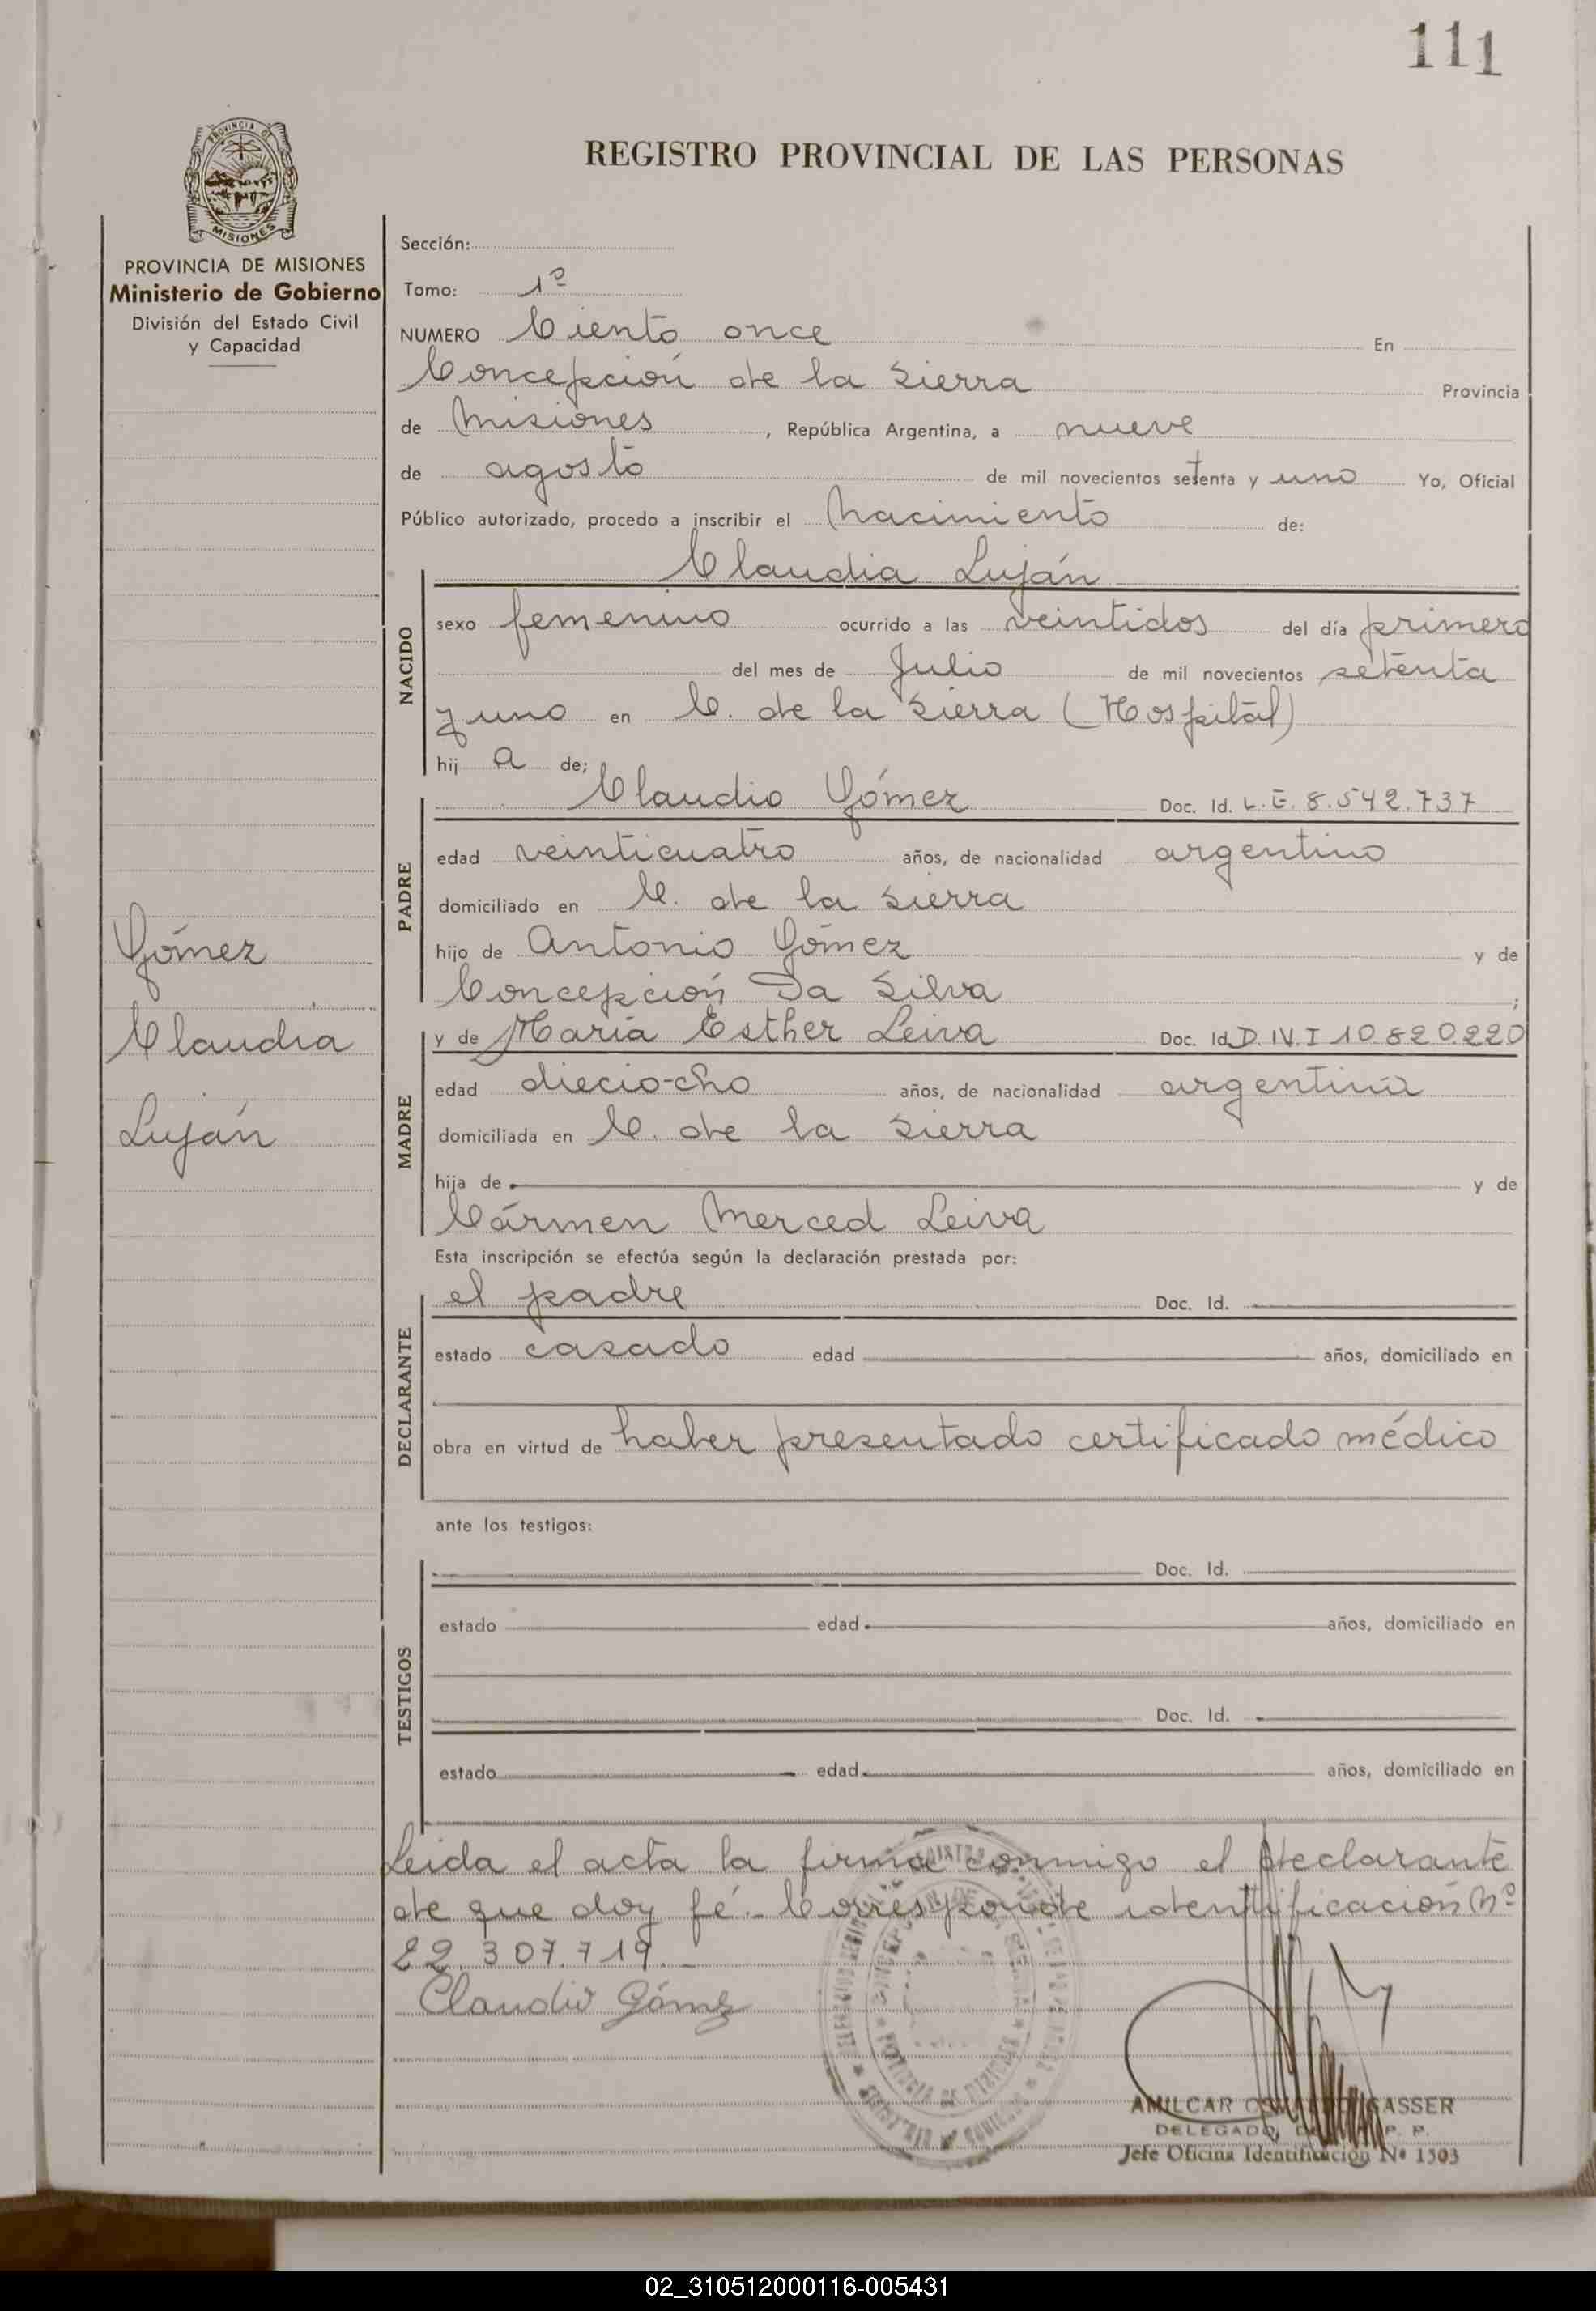 111
PROVINCIA DE
MISIONES
REGISTRO PROVINCIAL DE LAS PERSONAS
PROVINCIA DE MISIONES
Ministerio de Gobierno
División del Estado Civil
y Capacidad
Gómez
Claudia
Luján
Sección:
Tomo: 1º
NUMERO Ciento once En
Concepción de la Sierra Provincia
de Misiones, República Argentina, a nueve
de agosto de mil novecientos setenta y uno Yo, Oficial
Público autorizado, procedo a inscribir el Nacimiento de:
NACIDO
Claudia Luján
sexo femenino ocurrido a las veintidos del día primero
del mes de Julio de mil novecientos setenta
y uno en C. de la Sierra (Hospital)
hij a de;
PADRE
Claudio Gómez Doc. Id. L.E. 8.542.737
edad veinticuatro años, de nacionalidad argentino
domiciliado en C. de la Sierra
hijo de Antonio Gómez y de
Concepción Da Silva ;
MADRE
y de María Esther Leiva Doc. Id. D.N.I 10.820.220
edad dieciocho años, de nacionalidad argentina
domiciliada en C. de la Sierra
hija de y de
Cármen Merced Leiva
Esta inscripción se efectúa según la declaración prestada por:
DECLARANTE
el padre Doc. Id.
estado casado edad años, domiciliado en
obra en virtud de haber presentado certificado médico
ante los testigos:
TESTIGOS
Doc. Id.
estado edad años, domiciliado en
Doc. Id.
estado edad años, domiciliado en
Leida el acta la firma conmigo el declarante
de que doy fé.- Corresponde identificación Nº
22.307.719.-
Claudio Gómez
PROVINCIA DE MISIONES
AMILCAR OSWALDO GASSER
DELEGADO P. P.
Jefe Oficina Identificación Nº 1503
02_310512000116-005431